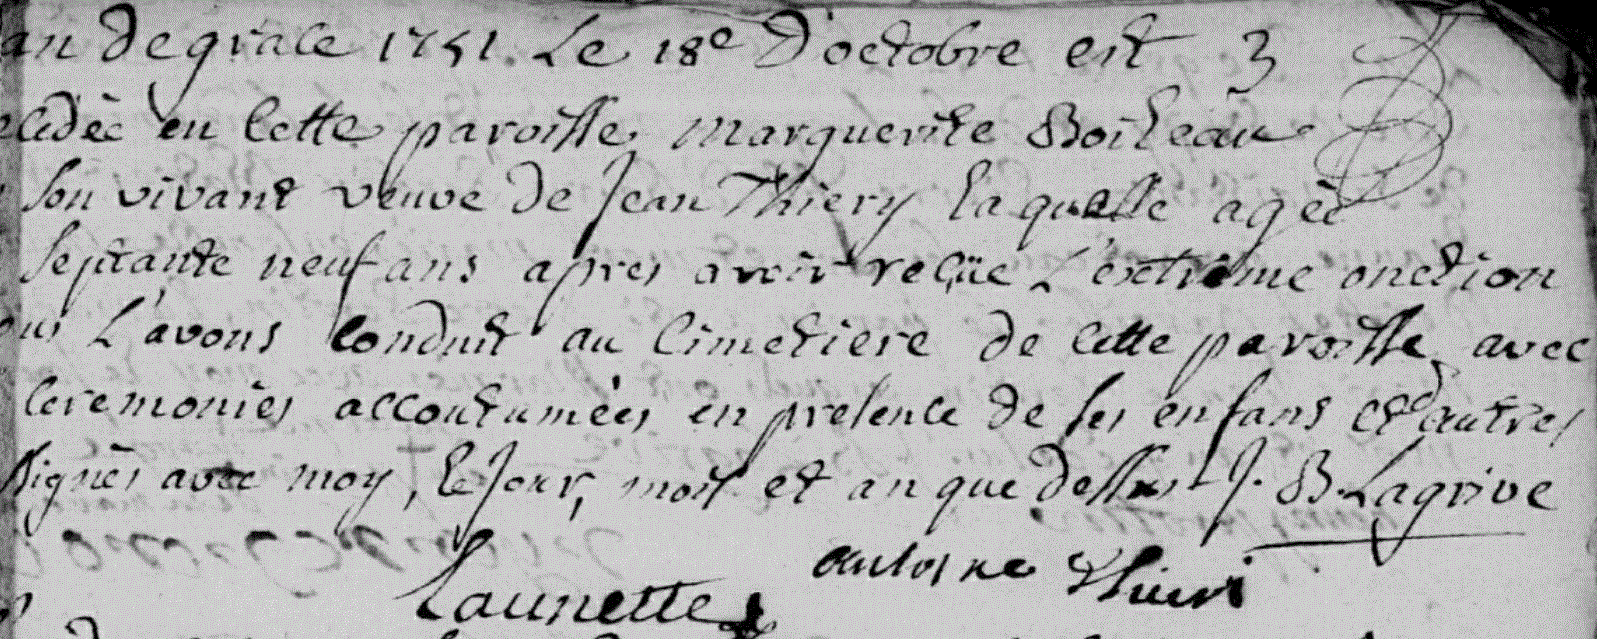 an de grace 1751. Le 18e d'octobre est
cedèe en cette paroisse marguerite Boileau
son vivant veuve de Jean Thiery laquelle agèe
septante neuf ans apres avoir reçüe L'extrême onction
ous L'avons conduit au cimetiere de cette paroisse, avec
ceremonies accoutumées, en presence de ses enfans et d'autres
signès avec moy, le jour, mois et an que dessus J. B. Lagrive
antoine thieri
Launette